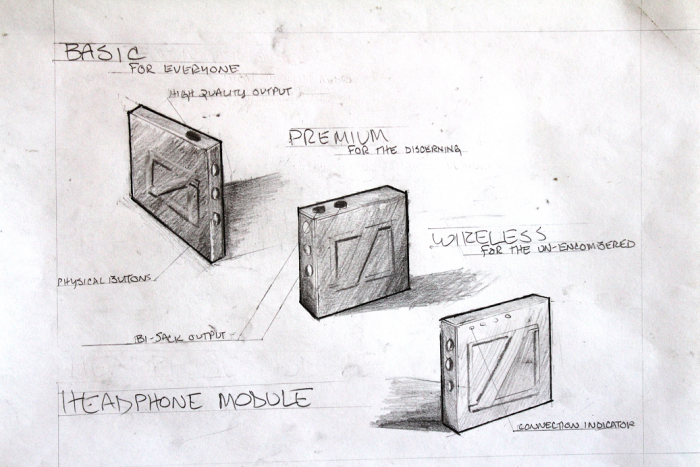 BASIC
FOR EVERYONE
HIGH QUALITY OUTPUT
PREMIUM
FOR THE DISCERNING
WIRELESS
FOR THE UN-ENCOMBERED
PHYSICAL BUTTONS
BI-JACK OUTPUT
HEADPHONE MODULE
CONNECTION INDICATOR